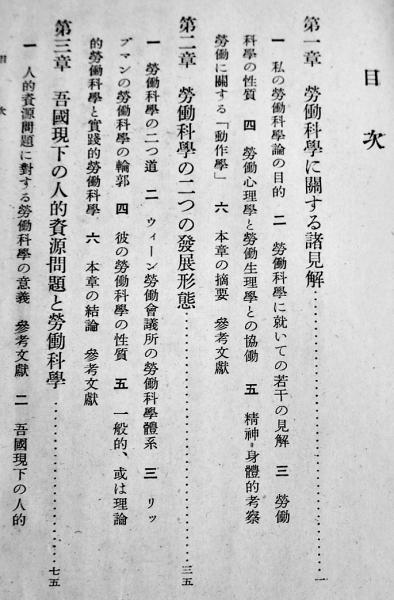 目次
第一章　勞働科學に關する諸見解……………………一
一　私の勞働科學論の目的　二　勞働科學に就いての若干の見解　三　勞働
科學の性質　四　勞働心理學と勞働生理學との協働　五　精神=身體的考察
勞働に關する「動作學」　六　本章の摘要　參考文獻
第二章　勞働科學の二つの發展形態……………………三五
一　勞働科學の二つ道　二　ウィーン勞働會議所の勞働科學體系　三　リッ
プマンの勞働科學の輪郭　四　彼の勞働科學の性質　五　一般的、或は理論
的勞働科學と實踐的勞働科學　六　本章の結論　參考文獻
第三章　吾國現下の人的資源問題と勞働科學……………………七五
一　人的資源問題に對する勞働科學の意義　參考文獻　二　吾國現下の人的
目次